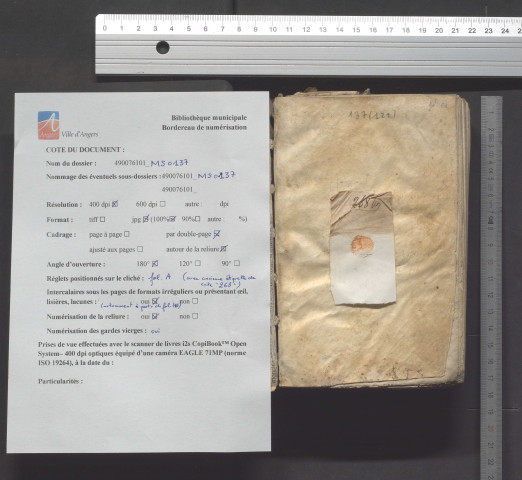 Ville d'Angers
Bibliothèque municipale
Bordereau de numérisation
COTE DU DOCUMENT :
Nom du dossier : 490076101_MS0137
Nommage des éventuels sous-dossiers :490076101_MS0137
490076101_
Résolution : 400 dpi ☒ 600 dpi ☐ autre : dpi
Format : tiff ☐ jpg ☒ (100%☒ 90%☐ autre : %)
Cadrage : page à page ☐ par double-page ☒
ajusté aux pages ☐ autour de la reliure ☒
Angle d'ouverture : 180° ☒ 120° ☐ 90° ☐
Réglets positionnés sur le cliché : fol. A
Intercalaires sous les pages de formats irréguliers ou présentant œil,
lisières, lacunes : oui ☒ non ☐
Numérisation de la reliure : oui ☒ non ☐
Numérisation des gardes vierges : oui
Prises de vue effectuées avec le scanner de livres i2s CopiBook™ Open
System– 400 dpi optiques équipé d'une caméra EAGLE 71MP (norme
ISO 19264), à la date du :
Particularités :
137 (129)
268
0 1 2 3 4 5 6 7 8 9 10 11 12 13 14 15 16 17 18 19 20 21 22 23 24 25